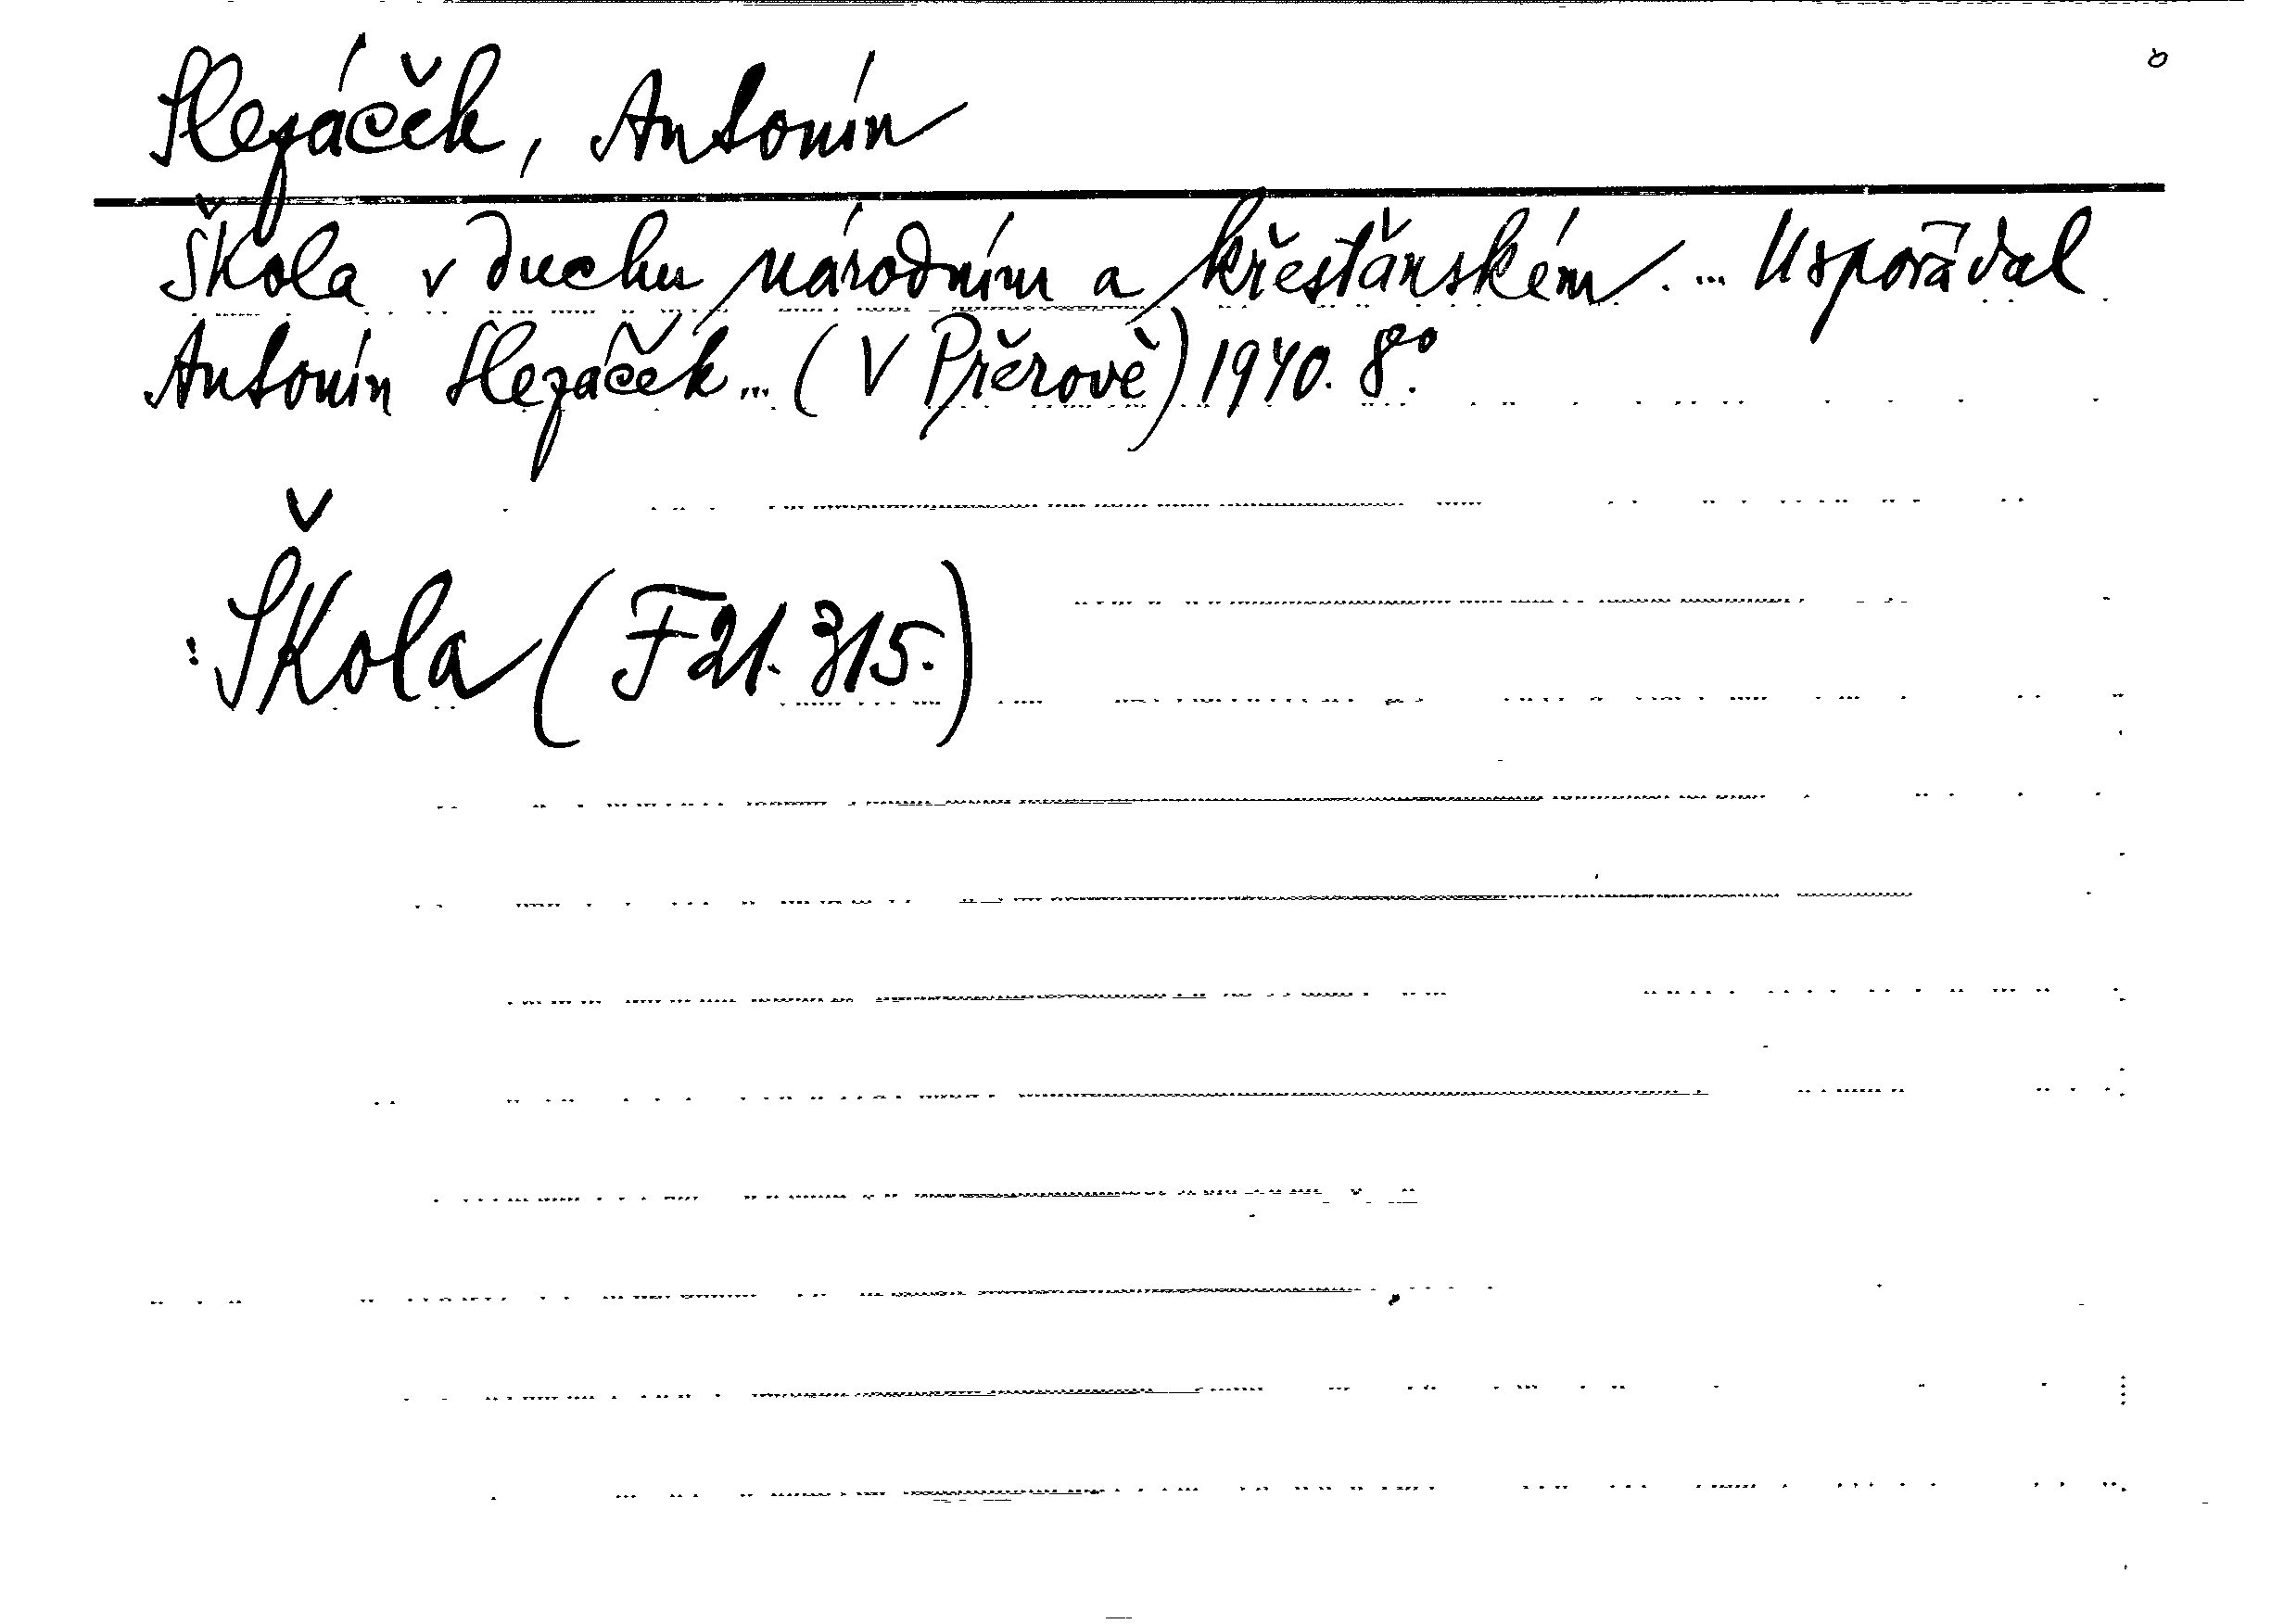 Slezáček, Antonín
Škola v duchu národním a křesťanském. ... Uspořádal
Antonín Slezáček ... (V Přerově) 1940. 8°.
Škola (F 21. 315.)